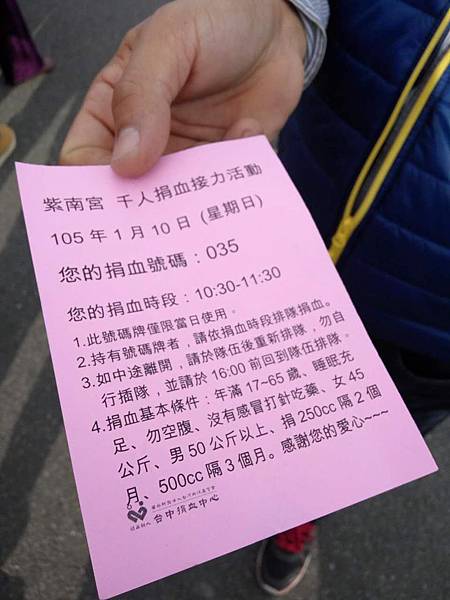 紫南宮 千人捐血接力活動
105 年 1 月 10 日 (星期日)
您的捐血號碼：035
您的捐血時段：10:30-11:30
1.此號碼牌僅限當日使用。
2.持有號碼牌者，請依捐血時段排隊捐血。
3.如中途離開，請於隊伍後重新排隊，勿自
行插隊，並請於 16:00 前回到隊伍排隊。
4.捐血基本條件：年滿 17~65 歲、睡眠充
足、勿空腹、沒有感冒打針吃藥、女 45
公斤、男 50 公斤以上、捐 250cc 隔 2 個
月、500cc 隔 3 個月。感謝您的愛心~~~
台中捐血中心